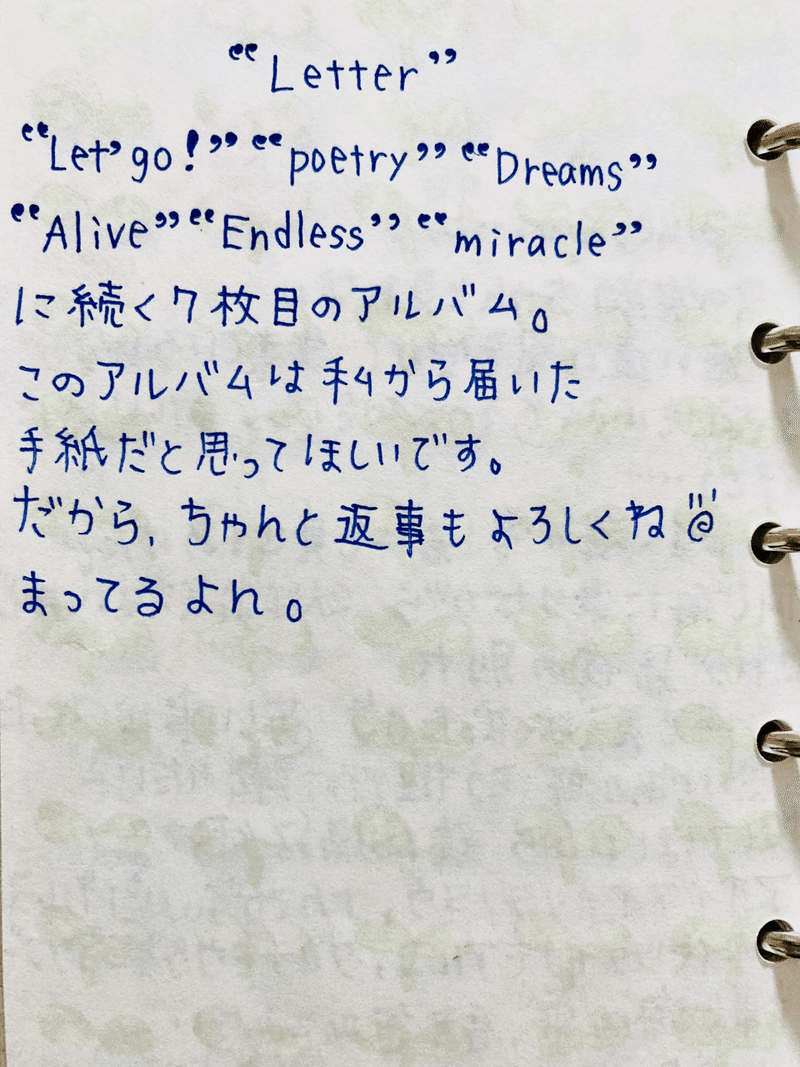 “Letter”
“Let' go!” “poetry” “Dreams”
“Alive” “Endless” “miracle”
に続く7枚目のアルバム。
このアルバムは私から届いた
手紙だと思ってほしいです。
だから、ちゃんと返事もよろしくね
まってるよん。